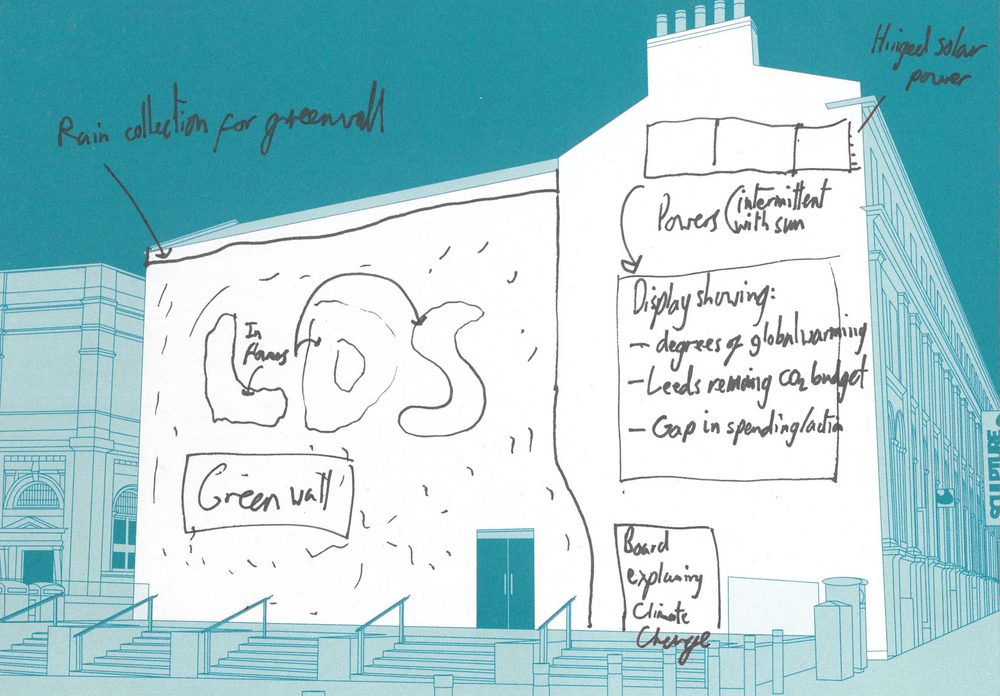 Hinged solar
power
Rain collection for greenwall
Powers (intermittent
with sun
LDS
In
flowers
Display showing:
– degrees of global warming
– Leeds remining CO2 budget
– Gap in spending/action
Green wall
Board
explaining
Climate
Change
SCULPTURE